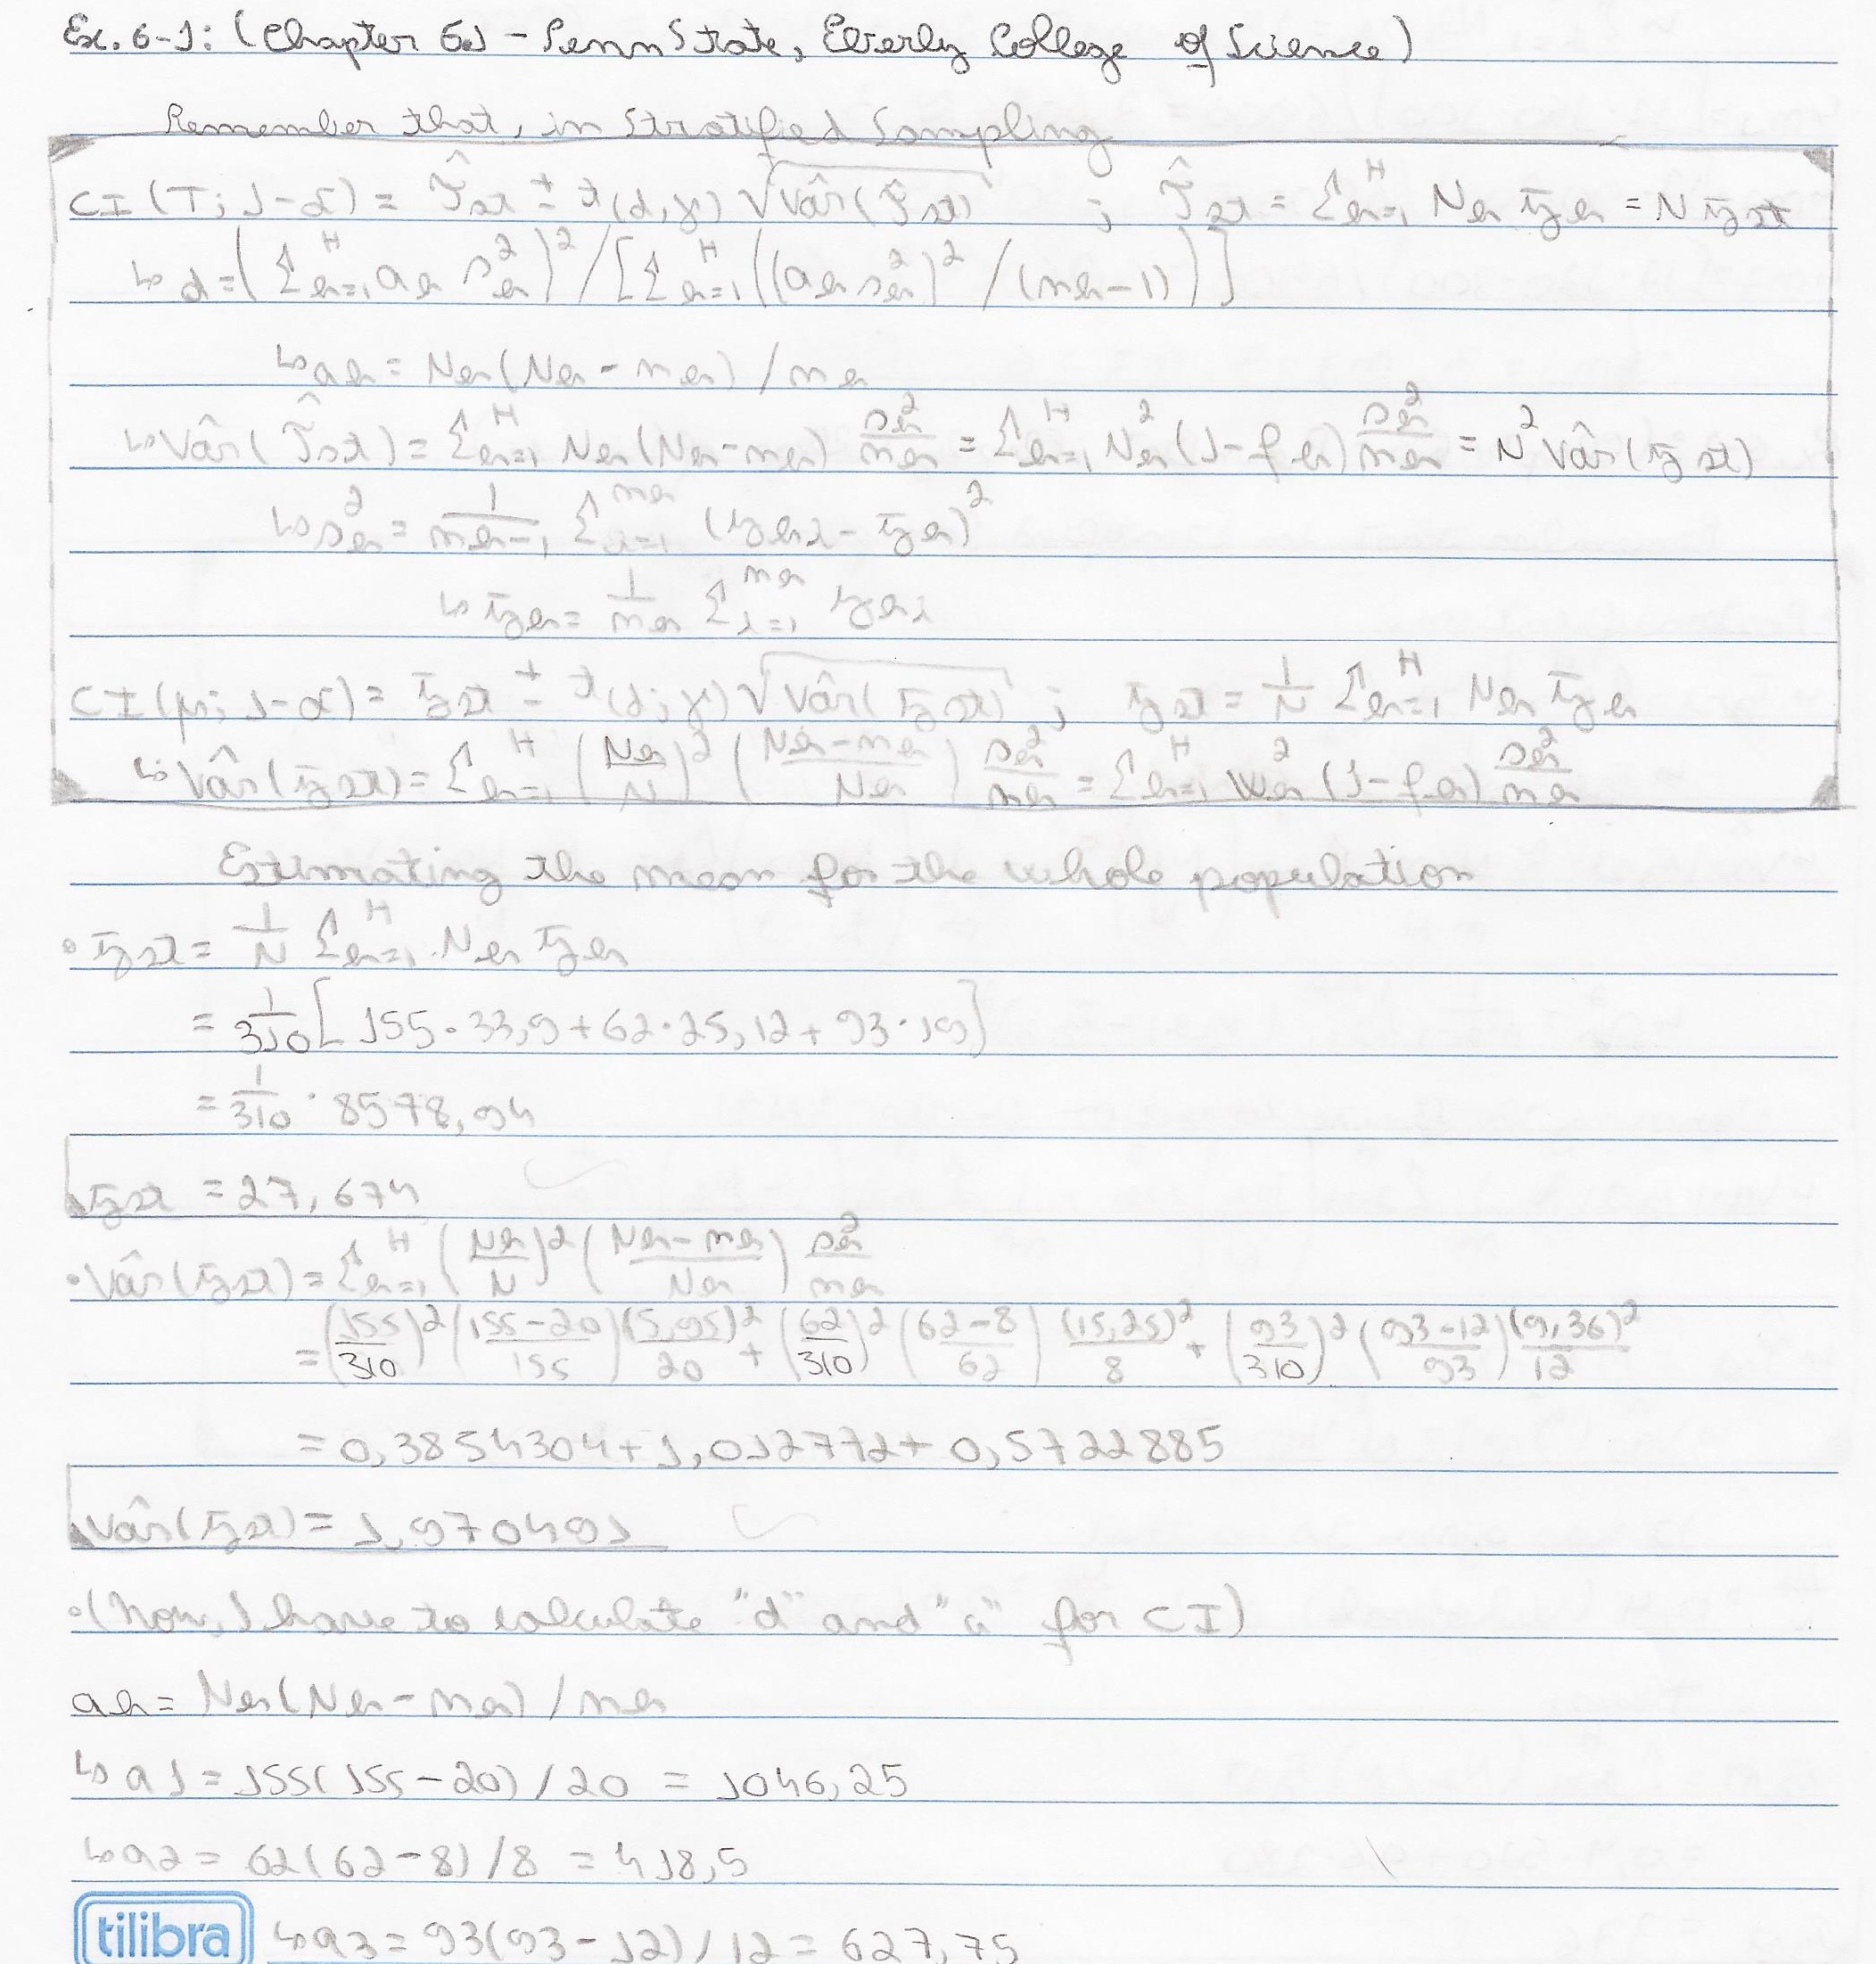 Ex. 6-1: (Chapter 6.1 - PennState, Eberly College of Science)
Remember that, in Stratified Sampling
CI(T; 1-α) = T̂st ± t(d,γ) √(vâr(T̂st)) ; T̂st = Σh=1^H Nh ȳh = N ȳst
↳ d = (Σh=1^H ah sh²)² / [Σh=1^H ((ah sh²)² / (nh-1))]
↳ ah = Nh(Nh - nh) / nh
↳ Vâr(T̂st) = Σh=1^H Nh(Nh-nh) sh²/nh = Σh=1^H Nh² (1-fh) sh²/nh = N² Vâr(ȳst)
↳ sh² = 1/(nh-1) Σi=1^nh (yhi - ȳh)²
↳ ȳh = 1/nh Σi=1^nh yhi
CI(μ; 1-α) = ȳst ± t(d;γ) √(Vâr(ȳst)) ; ȳst = 1/N Σh=1^H Nh ȳh
↳ Vâr(ȳst) = Σh=1^H (Nh/N)² ((Nh-nh)/Nh) sh²/nh = Σh=1^H Wh² (1-fh) sh²/nh
Estimating the mean for the whole population
• ȳst = 1/N Σh=1^H Nh ȳh
= 1/310 [155 · 33,9 + 62 · 25,12 + 93 · 19]
= 1/310 · 8578,94
ȳst = 27,674
• Vâr(ȳst) = Σh=1^H (Nh/N)² ((Nh-nh)/Nh) sh²/nh
= (155/310)² ((155-20)/155) (5,95)²/20 + (62/310)² ((62-8)/62) (15,25)²/8 + (93/310)² ((93-12)/93) (9,36)²/12
= 0,3854304 + 1,012772 + 0,5722885
Vâr(ȳst) = 1,970491
• (Now, I have to calculate "d" and "a" for CI)
ah = Nh(Nh - nh) / nh
↳ a1 = 155(155-20) / 20 = 1046,25
↳ a2 = 62(62-8) / 8 = 418,5
tilibra ↳ a3 = 93(93-12) / 12 = 627,75